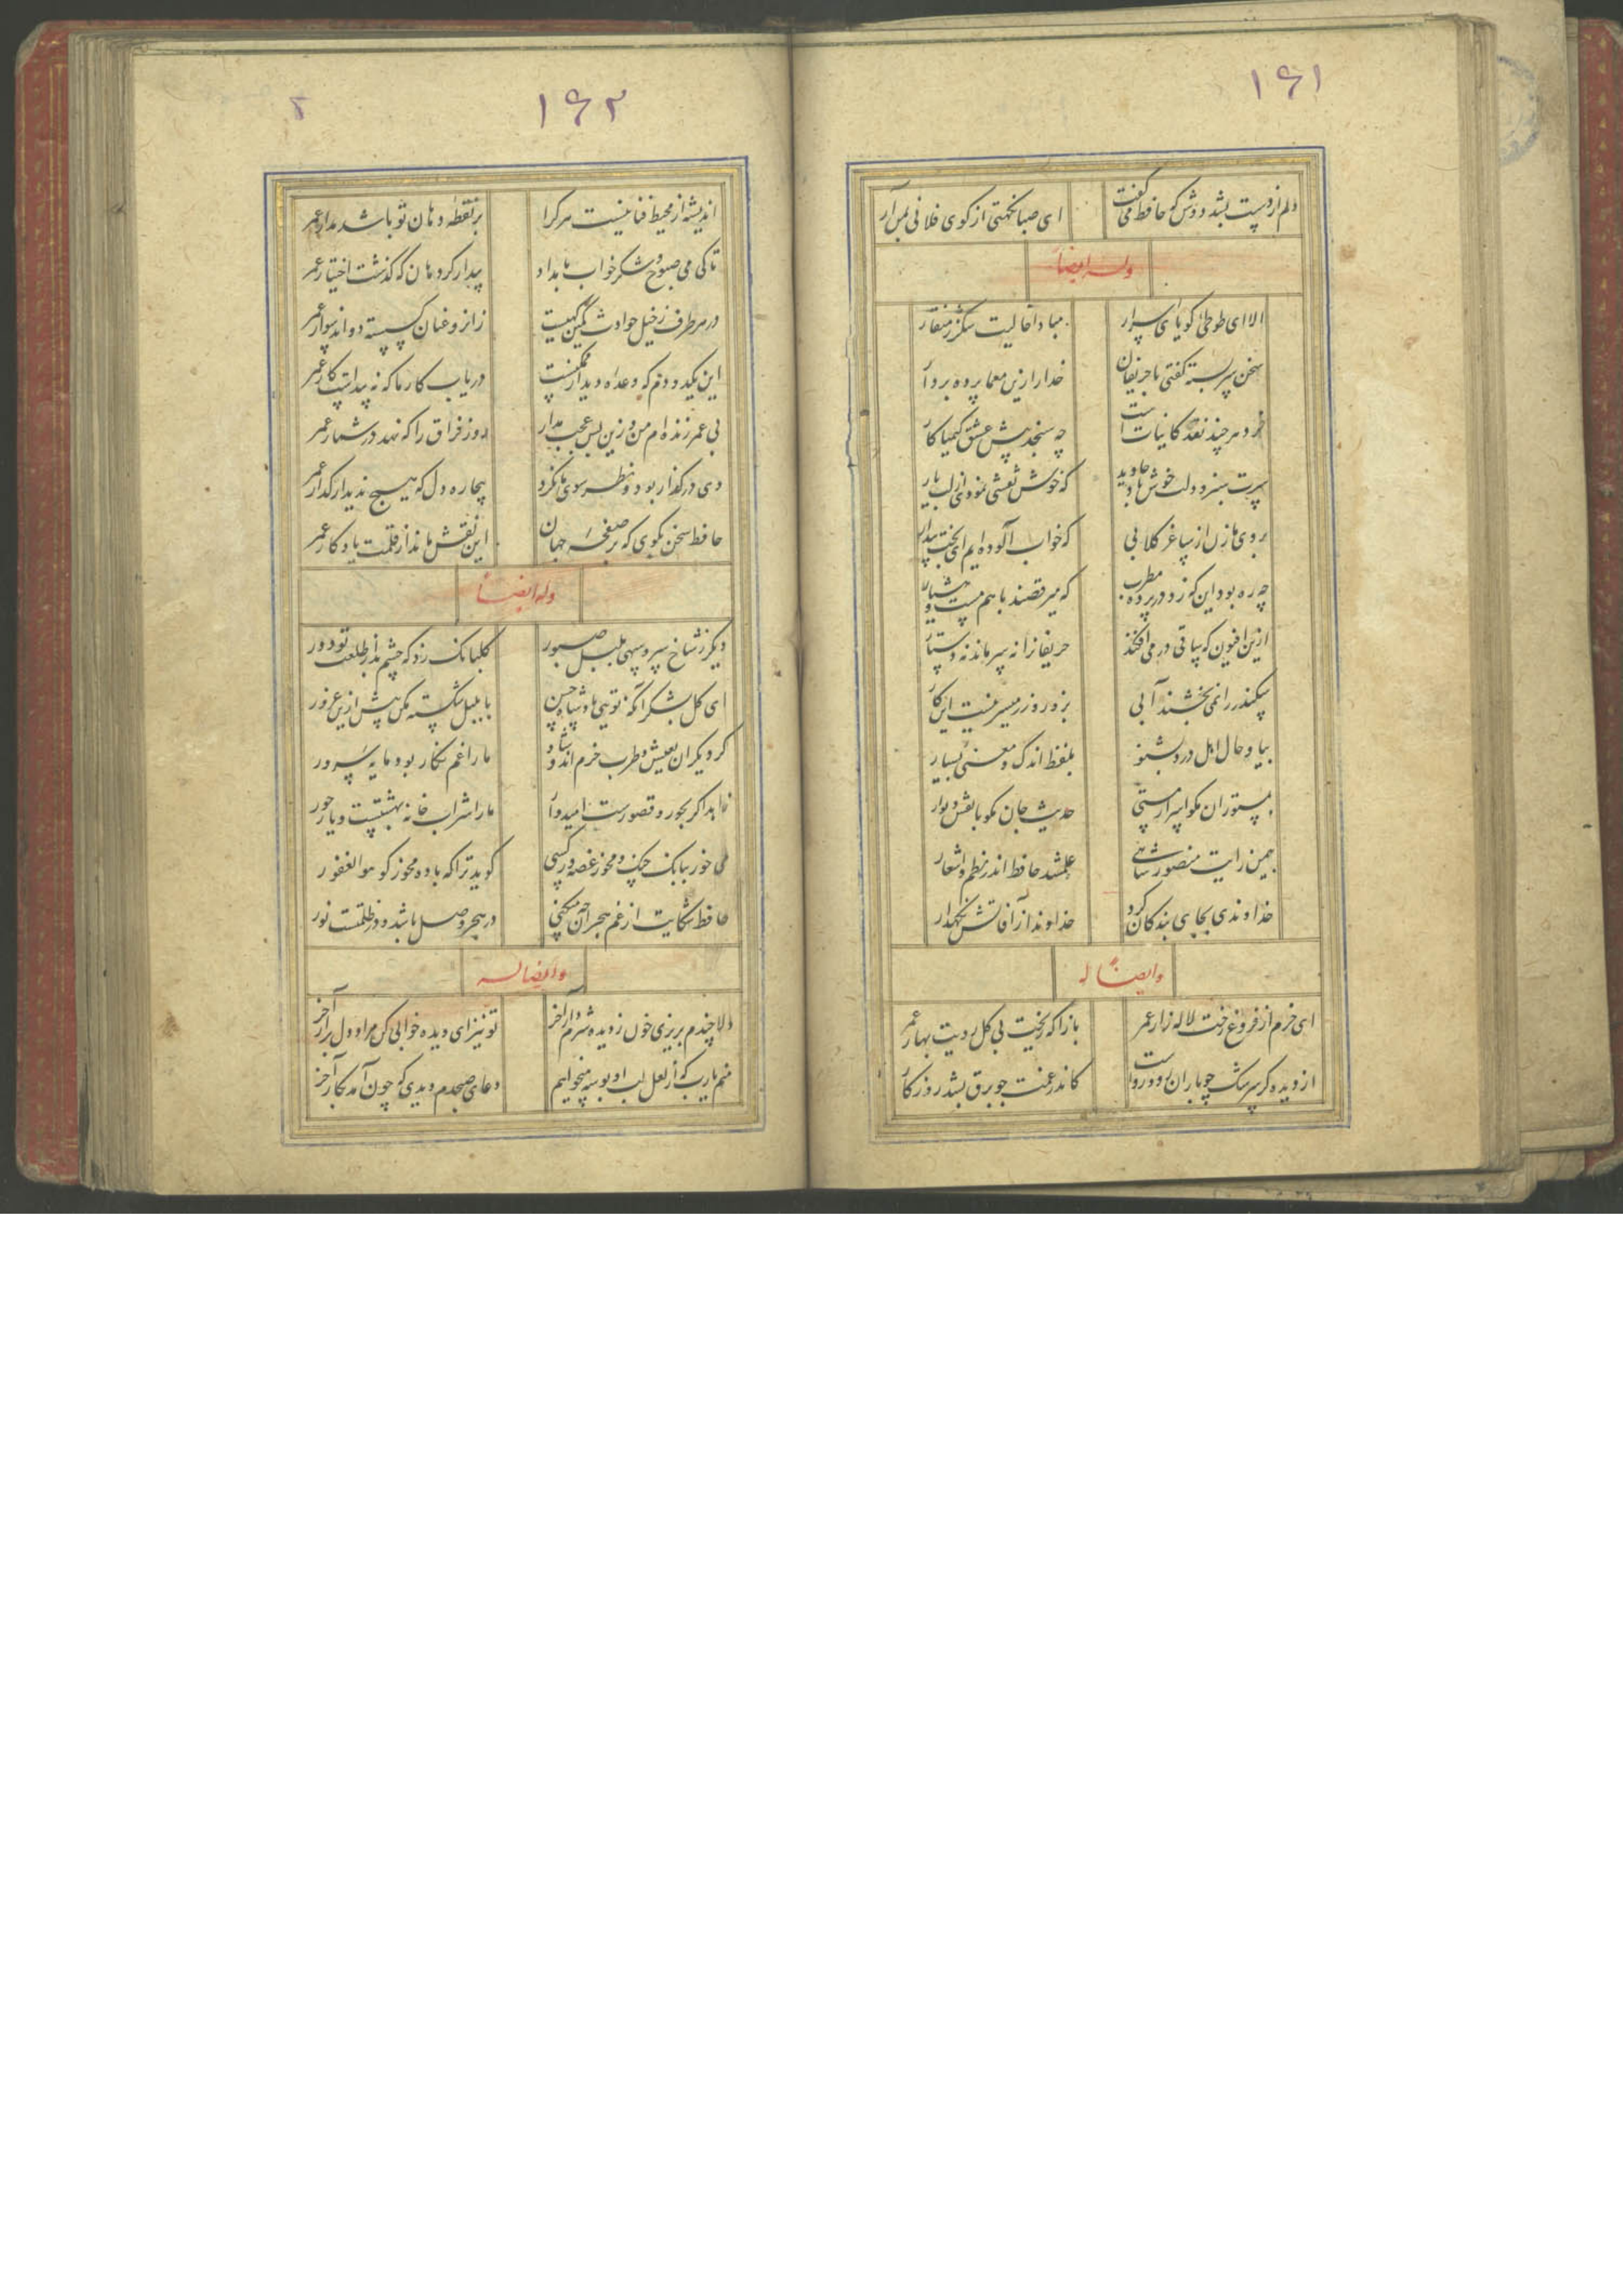 ۱۶۱
دلم از دست بشد دوش که حافظ می گفت ای صبا نکهتی از کوی فلانی بمن آر
وله ایضاً
الا ای طوطی گویای اسرار مبادا خالیت شکر ز منقار
سخن سربسته گفتی با حریفان خدا را زین معما پرده بردار
خرد هر چند نقد کایناتست چه سنجد پیش عشق کیمیاکار
سرت سبز و دلت خوش باد جاوید که خوش نقشی نمودی از لب یار
بروی ما زن از ساغر گلابی که خواب آلوده ایم ای بخت بیدار
چه ره بود این که زد در پرده مطرب که میرقصند با هم مست و هشیار
ازین افیون که ساقی در می افکند حریفانرا نه سر ماند نه دستار
سکندر را نمی بخشند آبی بزور و زر میسر نیست این کار
بیا و حال اهل درد بشنو بلفظ اندک و معنی بسیار
بمستوران مگو اسرار مستی حدیث جان مگو با نقش دیوار
بیمن رایت منصور شاهی علم شد حافظ اندر نظم و اشعار
خداوندی بجای بندگان کرد خداوندا ز آفاتش نگهدار
وایضاً له
ای خرم از فروغ رخت لاله زار عمر بازآ که ریخت بی گل رویت بهار عمر
از دیده گر سرشک چو باران رود رواست کاندر غمت چو برق بشد روزگار
۱۶۲
۲
اندیشه از محیط فنا نیست هر کرا بر نقطه دهان تو باشد مدار عمر
تا کی می صبوح و شکر خواب بامداد بیدار گرد هان که گذشت اختیار عمر
در هر طرف ز خیل حوادث کمین گهیست زانرو عنان گسسته دواند سوار عمر
این یکدو دم که وعده دیدار ممکنست دریاب کار ما که نه پیداست کار عمر
بی عمر زنده ام من و زین بس عجب مدار روز فراق را که نهد در شمار عمر
دی در گذار بود و نظر سوی ما نکرد بیچاره دل که هیچ ندید از گذار عمر
حافظ سخن بگوی که بر صفحه جهان این نقش ماند از قلمت یادگار عمر
وله ایضاً
دیگر ز شاخ سرو سهی بلبل صبور گلبانگ زد که چشم بد از طلعت تو دور
ای گل بشکر آنکه تویی پادشاه حسن با بلبل شکسته مکن پیش ازین غرور
گر دیگران بعیش و طرب خرم اند و شاد ما را غم نگار بود مایه سرور
زاهد اگر بحور و قصورست امیدوار ما را شراب خانه بهشتست و یار حور
می خور ببانک چنگ و مخور غصه ور کسی گوید ترا که باده مخور گو هو الغفور
حافظ شکایت از غم هجران چه میکنی در هجر وصل باشد و در ظلمتست نور
وایضا له
دلا چندم بریزی خون ز دیده شرم دار آخر تو نیز ای دیده خوابی کن مراد دل برآر آخر
منم یارب که از لعل لب او بوسه میخواهم دعای صبحدم دیدی که چون آمد بکار آخر